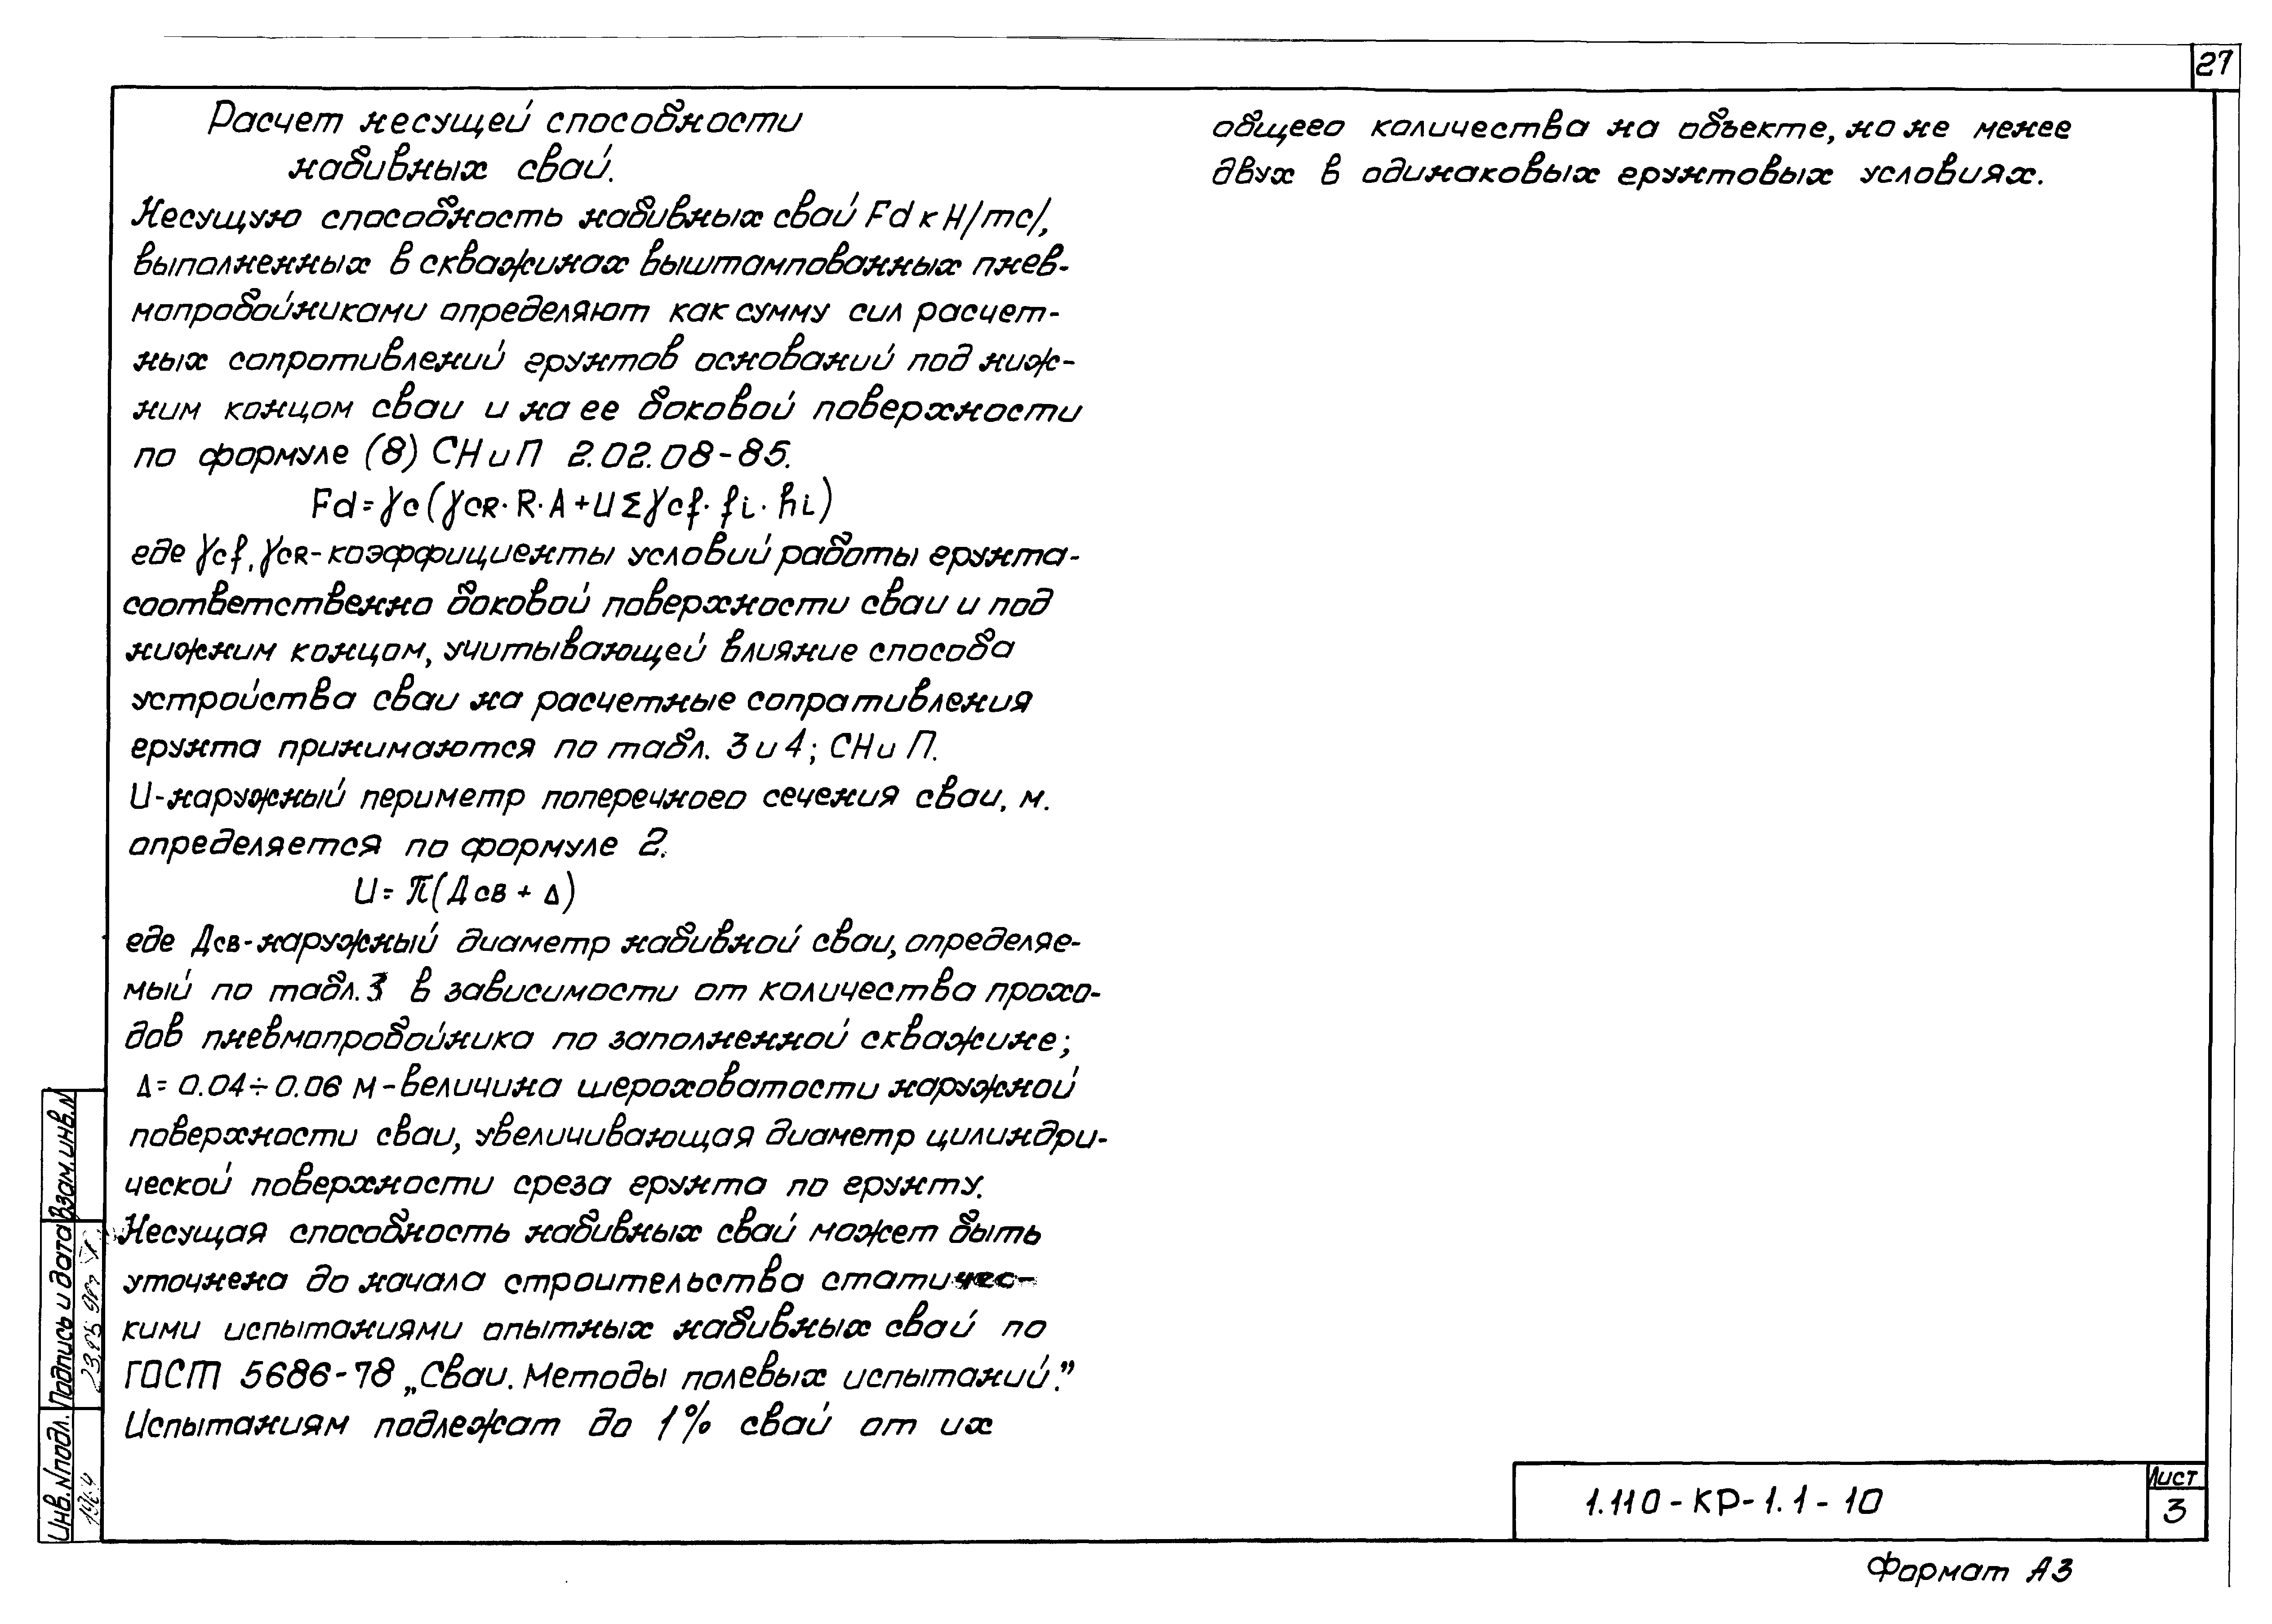 27
Расчет несущей способности
набивных свай.
Несущую способность набивных свай Fd кН/тс/,
выполненных в скважинах выштампованных пнев-
мопробойниками определяют как сумму сил расчет-
ных сопротивлений грунтов оснований под ниж-
ним концом сваи и на ее боковой поверхности
по формуле (8) СНиП 2.02.08-85.
Fd = γc (γcR · R · A + U Σ γcf · fi · hi)
где γcf, γcR - коэффициенты условий работы грунта-
соответственно боковой поверхности сваи и под
нижним концом, учитывающей влияние способа
устройства сваи на расчетные сопротивления
грунта принимаются по табл. 3 и 4; СНиП.
U - наружный периметр поперечного сечения сваи, м.
определяется по формуле 2.
U = π(Дсв + Δ)
где Дсв - наружный диаметр набивной сваи, определяе-
мый по табл. 3 в зависимости от количества прохо-
дов пневмопробойника по заполненной скважине;
Δ = 0.04 ÷ 0.06 м - величина шероховатости наружной
поверхности сваи, увеличивающая диаметр цилиндри-
ческой поверхности среза грунта по грунту.
Несущая способность набивных свай может быть
уточнена до начала строительства статичес-
кими испытаниями опытных набивных свай по
ГОСТ 5686-78 „Сваи. Методы полевых испытаний.”
Испытаниям подлежат до 1% свай от их
общего количества на объекте, но не менее
двух в одинаковых грунтовых условиях.
Взам.инв.N
Подпись и дата
Инв.N подл.
1.110-КР-1.1-10
Лист
3
Формат А3